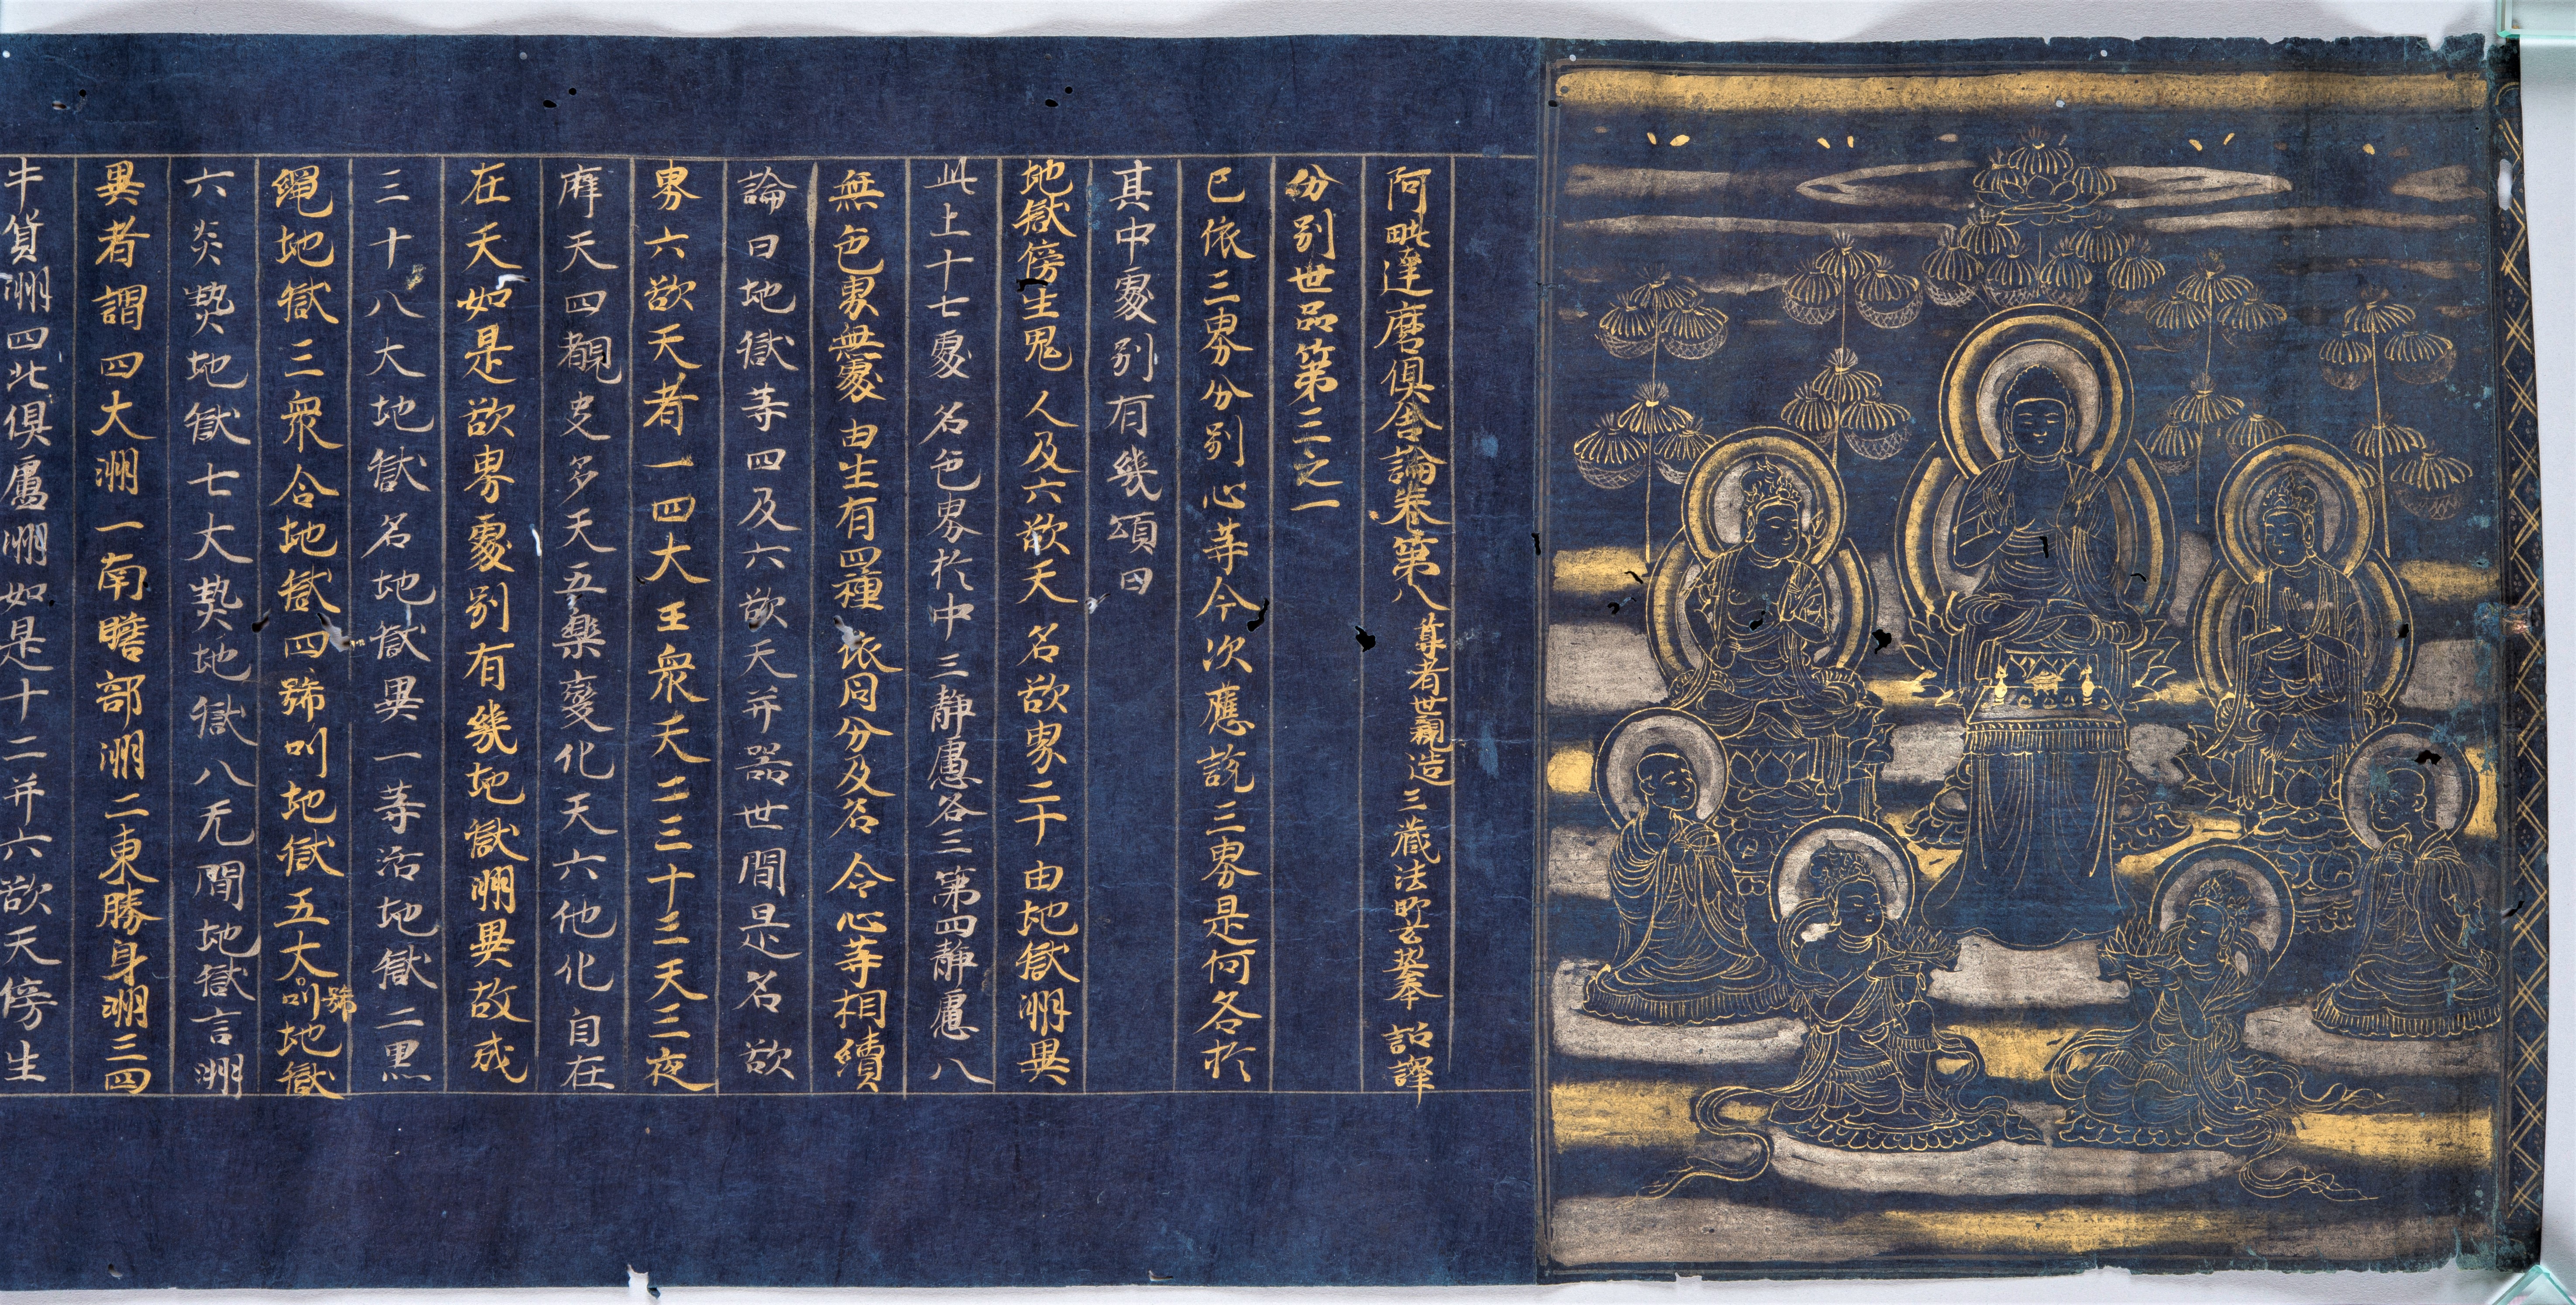 阿毗達磨俱舍論卷第八 尊者世親造 三藏法師玄奘奉 詔譯
分別世品第三之一
已依三界分別心等今次應說三界是何各於
其中處別有幾頌曰
地獄傍生鬼 人及六欲天 名欲界二十 由地獄洲異
此上十七處 名色界於中 三靜慮各三 第四靜慮八
無色界無處 由生有四種 依同分及命 令心等相續
論曰地獄等四及六欲天并器世間是名欲
界六欲天者一四大王眾天二三十三天三夜
摩天四覩史多天五樂變化天六他化自在
在天如是欲界處別有幾地獄洲異故成
三十八大地獄名地獄異一等活地獄二黑
繩地獄三眾合地獄四號叫地獄五大叫號地獄
六炎熱地獄七大熱地獄八无間地獄言洲
異者謂四大洲一南贍部洲二東勝身洲三四
牛貨洲四北俱盧洲如是十二并六欲天傍生